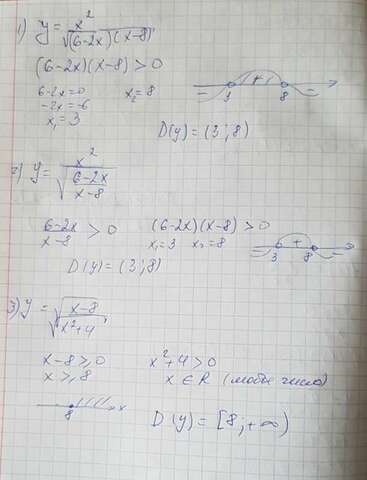 1) y = x² / √((6-2x)(x-8))
(6-2x)(x-8) > 0
6-2x=0   x₂=8
-2x=-6
x₁=3
- 3 + 8 -
D(y) = (3; 8)
2) y = x² / √((6-2x)/(x-8))
(6-2x)/(x-8) > 0   (6-2x)(x-8) > 0
x₁=3   x₂=8
- 3 + 8 -
D(y) = (3; 8)
3) y = √(x-8) / √(x²+4)
x-8 ≥ 0   x²+4 > 0
x ≥ 8   x ∈ R (любые числа)
8 x
D(y) = [8; +∞)